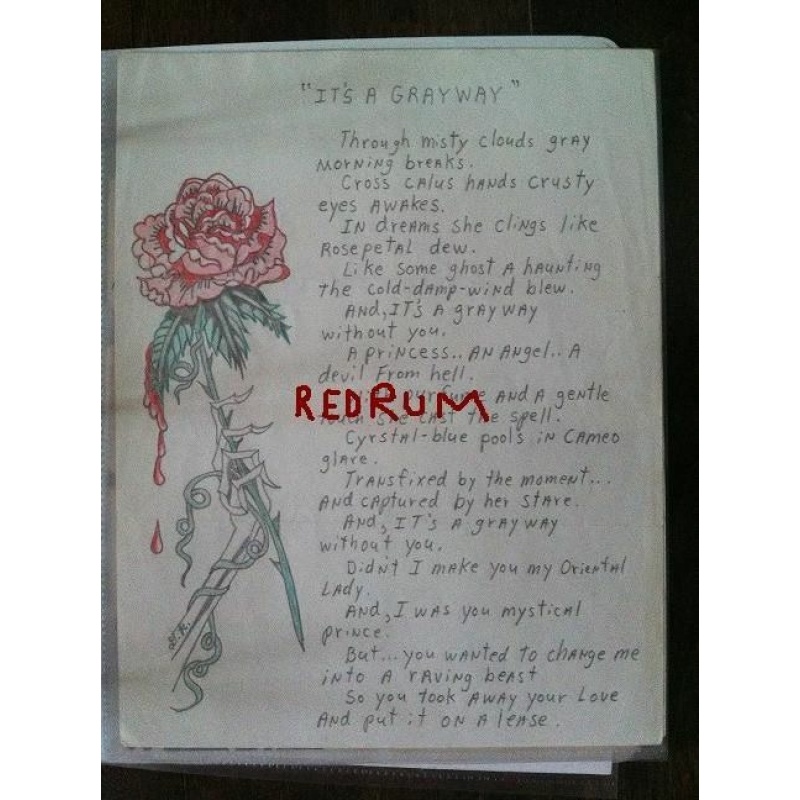 "IT'S A GRAYWAY"
Through misty clouds gray
Morning breaks.
Cross calus hands crusty
eyes awakes.
In dreams she clings like
Rosepetal dew.
Like some ghost a haunting
the cold-damp-wind blew.
And, IT'S A grayway
without you.
A princess.. An Angel.. A
devil From hell.
And A gentle
she cast the spell.
REDRUM
Cyrstal-blue pools in Cameo
glare.
Transfixed by the moment...
And captured by her stare.
And, IT'S A grayway
without you.
Didn't I make you my Oriental
Lady.
And, I was you mystical
prince.
But... you wanted to change me
into A raving beast
So you took away your Love
And put it on A lease.
D.R.